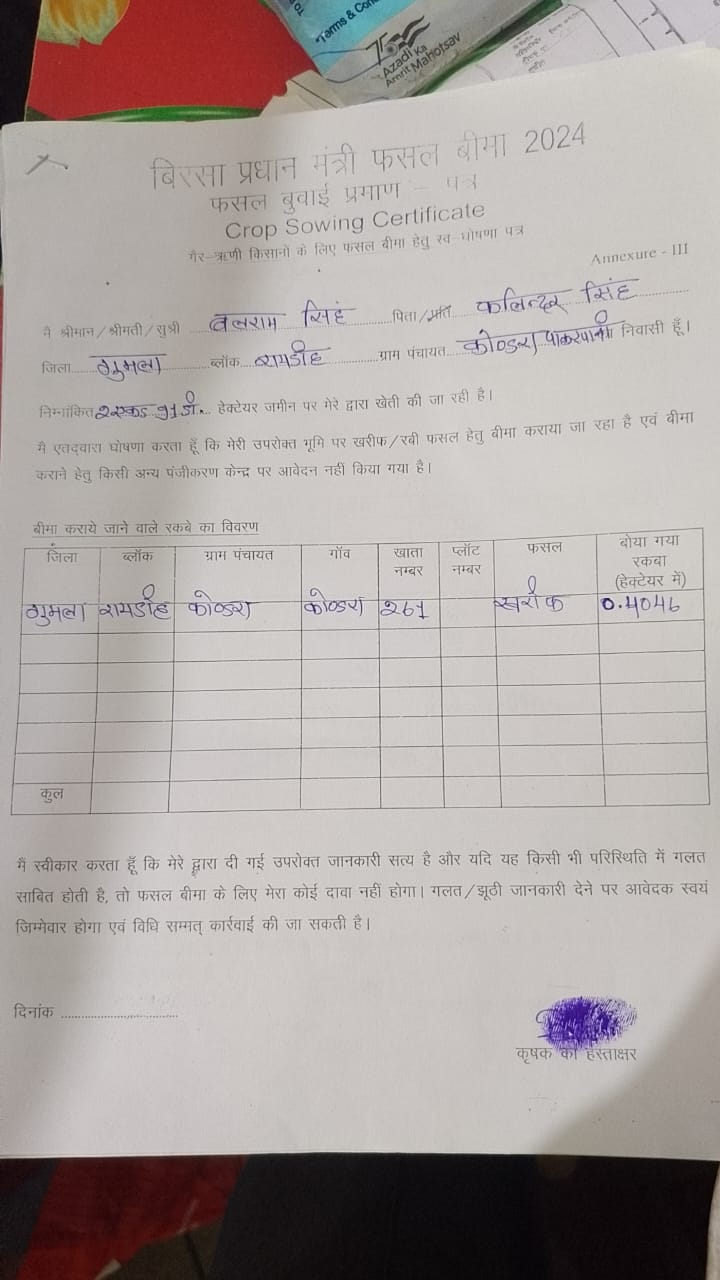 Terms & Con
75
Azadi Ka
Amrit Mahotsav
बिरसा प्रधान मंत्री फसल बीमा 2024
फसल बुवाई प्रमाण - पत्र
Crop Sowing Certificate
गैर-ऋणी किसानों के लिए फसल बीमा हेतु स्व-घोषणा पत्र
Annexure - III
मै श्रीमान/श्रीमती/सुश्री बलराम सिंह पिता/पति फलिन्दर सिंह
जिला गुमला ब्लॉक रायडीह ग्राम पंचायत कोण्डरा निवासी हूँ।
निम्नांकित 2 एकड़ 91 डी. हेक्टेयर जमीन पर मेरे द्वारा खेती की जा रही है।
मै एतद्वारा घोषणा करता हूँ कि मेरी उपरोक्त भूमि पर खरीफ/रबी फसल हेतु बीमा कराया जा रहा है एवं बीमा
कराने हेतु किसी अन्य पंजीकरण केन्द्र पर आवेदन नहीं किया गया है।
बीमा कराये जाने वाले रकबे का विवरण
जिला ब्लॉक ग्राम पंचायत गॉव खाता नम्बर प्लॉट नम्बर फसल बोया गया रकबा (हेक्टेयर में)
गुमला रायडीह कोण्डरा कोण्डरा 261 खरीफ 0.4046
कुल
मै स्वीकार करता हूँ कि मेरे द्वारा दी गई उपरोक्त जानकारी सत्य है और यदि यह किसी भी परिस्थिति में गलत
साबित होती है, तो फसल बीमा के लिए मेरा कोई दावा नहीं होगा। गलत/झूठी जानकारी देने पर आवेदक स्वयं
जिम्मेवार होगा एवं विधि सम्मत् कार्रवाई की जा सकती है।
दिनांक
कृषक का हस्ताक्षर